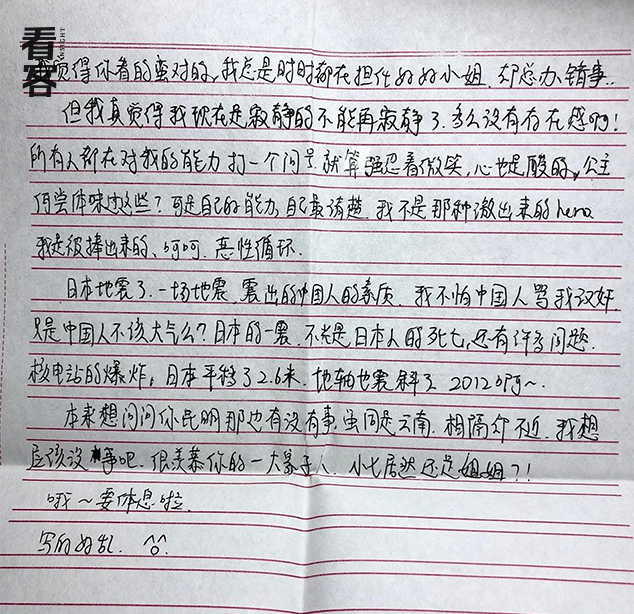 看客
INSIGHT
我觉得你看的蛮对的,我总是时时都在担任好好小姐,却总办错事..
但我真觉得我现在是寂静的不能再寂静了.多么没有存在感啊!
所有人都在对我的能力打一个问号.就算强忍着微笑,心也是酸的,公主
何尝体味过这些?可是自己的能力自己最清楚.我不是那种激出来的hero.
我是被捧出来的、呵呵.恶性循环.
日本地震了.一场地震.震出的中国人的素质.我不怕中国人骂我汉奸.
只是中国人不该大气么?日本的一震.不光是日本人的死亡,还有许多问题.
核电站的爆炸,日本平移了2.6米.地轴地震斜了.2012啊~.
本来想问问你昆明那边有没有事.虽同是云南.相隔亦不近.我想
应该没事吧.很羡慕你的一大家子人.小七居然还是姐姐?!
哦~要休息啦.
写的好乱. ^o^.